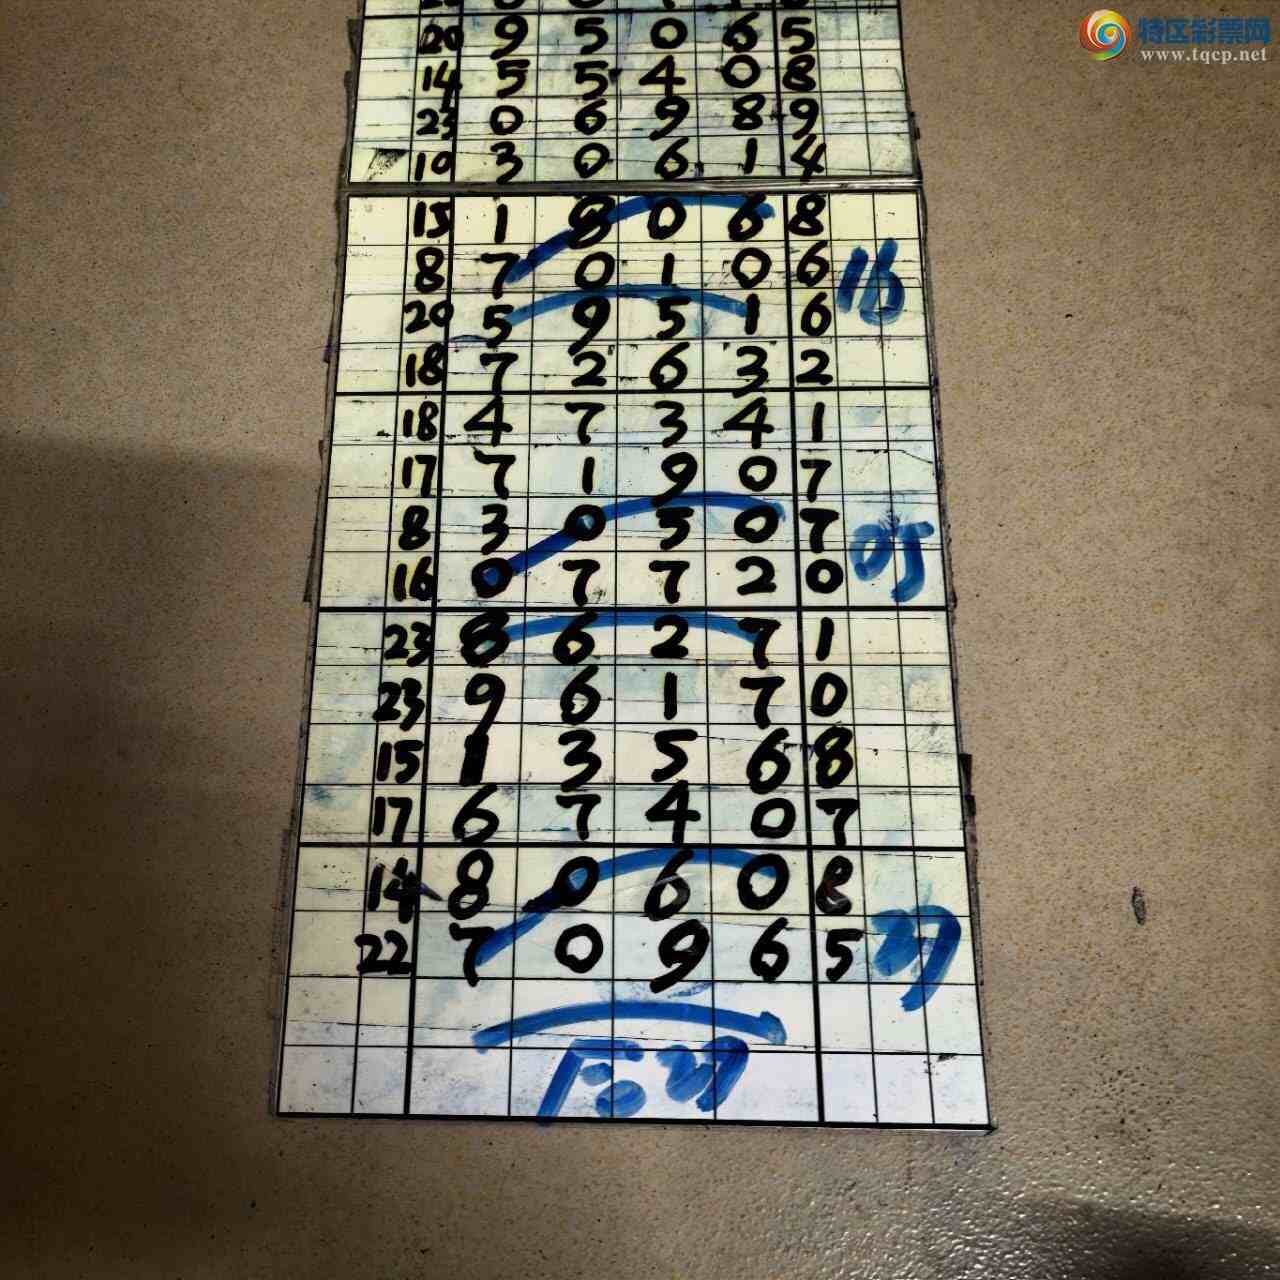 特区彩票网
www.tqcp.net
20 9 5 0 6 5
14 5 5 4 0 8
23 0 6 9 8 9
10 3 0 6 1 4
15 1 8 0 6 8
8 7 0 1 0 6 16
20 5 9 5 1 6
18 7 2 6 3 2
18 4 7 3 4 1
17 7 1 9 0 7
8 3 0 5 0 7 05
16 0 7 7 2 0
23 8 6 2 7 1
23 9 6 1 7 0
15 1 3 5 6 8
17 6 7 4 0 7
14 8 0 6 0 8
22 7 0 9 6 5 27
后27